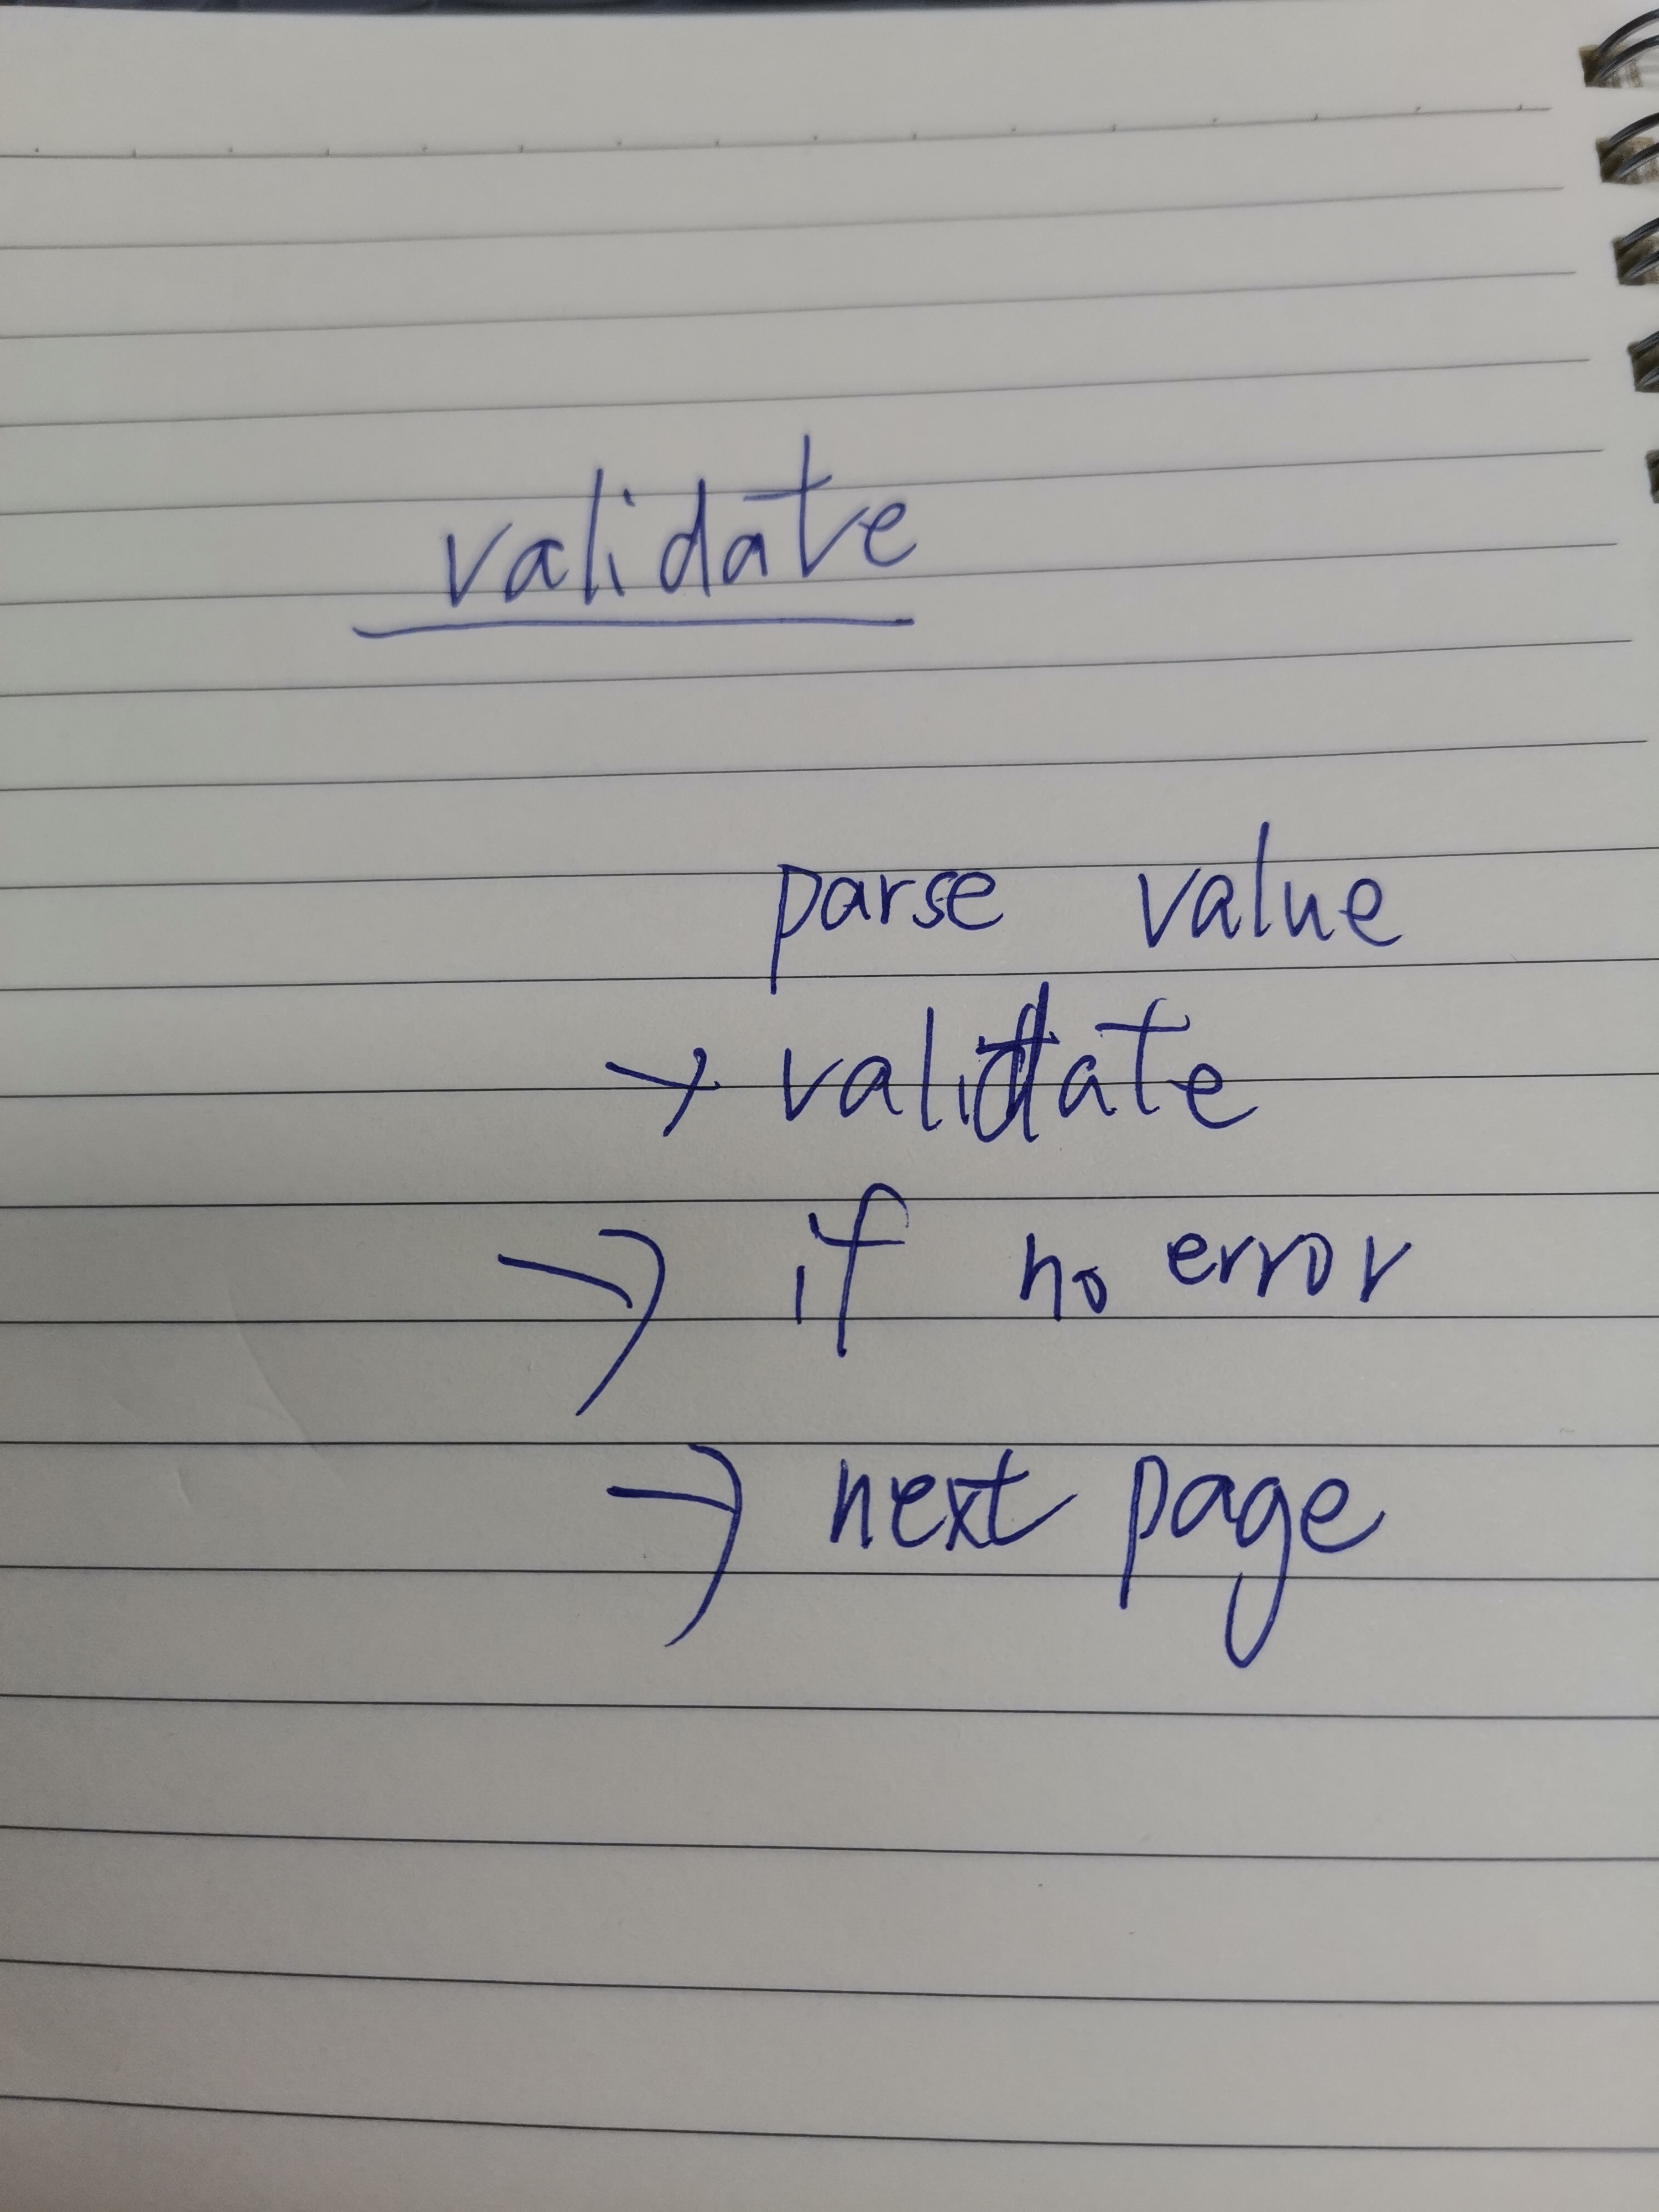 validate
parse value
→ validate
→ if no error
→ next page